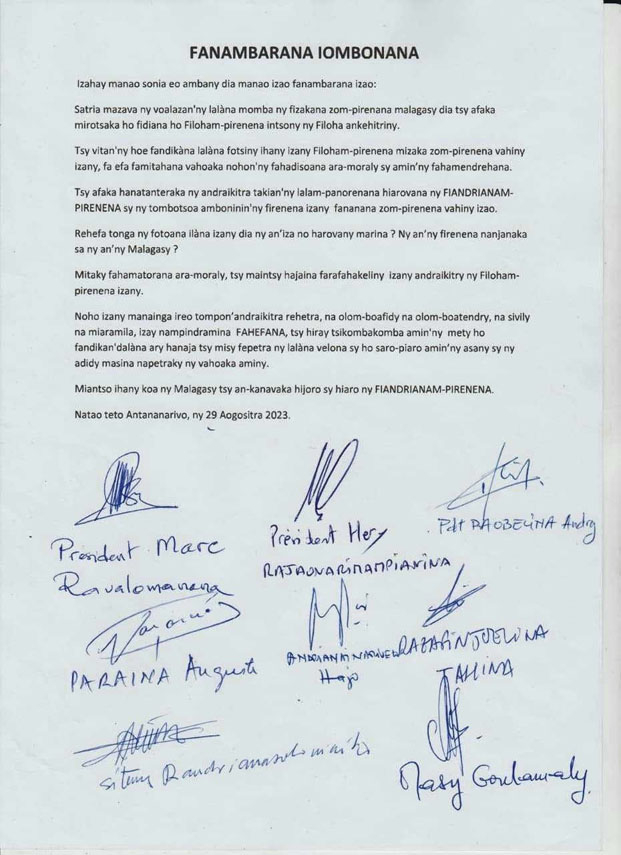 FANAMBARANA IOMBONANA
Izahay manao sonia eo ambany dia manao izao fanambarana izao:
Satria mazava ny voalazan'ny lalàna momba ny fizakana zom-pirenana malagasy dia tsy afaka
mirotsaka ho fidiana ho Filoham-pirenena intsony ny Filoha ankehitriny.
Tsy vitan'ny hoe fandikàna lalàna fotsiny ihany izany Filoham-pirenena mizaka zom-pirenena vahiny
izany, fa efa famitahana vahoaka nohon'ny fahadisoana ara-moraly sy amin'ny fahamendrehana.
Tsy afaka hanatanteraka ny andraikitra takian'ny lalam-panorenana hiarovana ny FIANDRIANAM-
PIRENENA sy ny tombotsoa amboninin'ny firenena izany fananana zom-pirenena vahiny izao.
Rehefa tonga ny fotoana ilàna izany dia ny an'iza no harovany marina ? Ny an'ny firenena nanjanaka
sa ny an'ny Malagasy ?
Mitaky fahamatorana ara-moraly, tsy maintsy hajaina farafahakeliny izany andraikitry ny Filoham-
pirenena izany.
Noho izany manainga ireo tompon'andraikitra rehetra, na olom-boafidy na olom-boatendry, na sivily
na miaramila, izay nampindramina FAHEFANA, tsy hiray tsikombakomba amin'ny mety ho
fandikan'dalàna ary hanaja tsy misy fepetra ny lalàna velona sy ho saro-piaro amin'ny asany sy ny
adidy masina napetraky ny vahoaka aminy.
Miantso ihany koa ny Malagasy tsy an-kanavaka hijoro sy hiaro ny FIANDRIANAM-PIRENENA.
Natao teto Antananarivo, ny 29 Aogositra 2023.
Président Marc
Ravalomanana
Président Hery
RAJAONARIMAMPIANINA
Pdt RAOBELINA Andry
PARAINA Auguste
Hajo
RAZAFINJOELINA
TAHINA
Siteny Randrianasoloniaiko
Masy Goulamaly